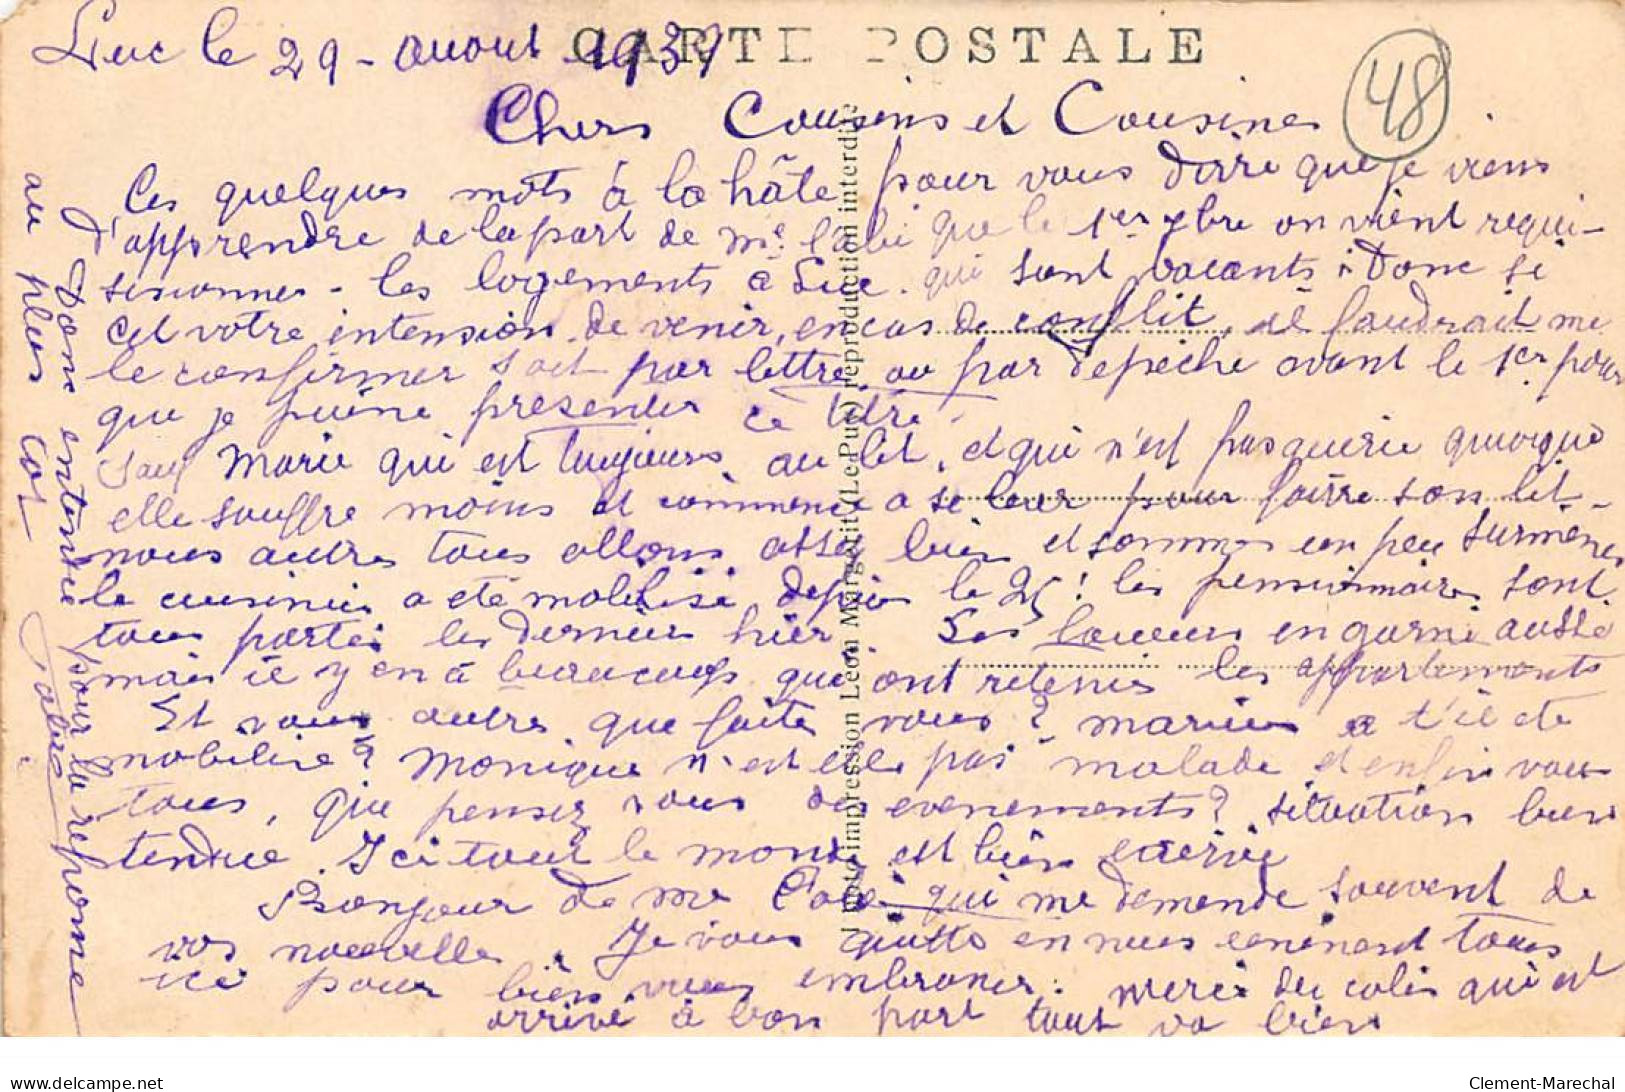 CARTE POSTALE
Luc le 29 - auout 1939
48
Chers Cousins et Cousines
Ces quelques mots à la hâte pour vous dirre que je viens
d'apprendre de la part de mr l'abé que le 1er 7bre on vient requi-
sisionner - les logements a Luc. qui sont vacants. Donc si
cet votre intension de venir, en cas de conflit, il faudrait me
le confirmer soit par lettre ou par dépêche avant le 1er pour
que je puine presenter ce titre.
sauf Marie qui est toujours au lit, et qui n'est pas guerie quoique
elle souffre moins et commence a se lever pour faire son lit -
nous autres tous allons assez bien et sommes un peu surmenes
le cuisinier a eté mobilisé depuis le 25! les pensionnaires sont
tous partis les derniers hier. Les loueurs en garni aussi
mais il y en à beaucoups qui ont retenus les appartements
Et vous autres que faites vous? Marius a t'il ete
mobilisé? Monique n'est elle pas malade et enfin vous
tous, que pensez vous des evenements? situation bien
tendue. Ici tout le monde est bien enervé
Bongour de me qui me demande souvent de
vos nouvelles. Je vous quitte en nous tous
ici pour bien vous embrasser. merci du colis qui est
arrivé à bon port tout va bien
Donc entendu pour la reponse
au plus tot
Photo-impression Léon Margerit (Le Puy) reproduction interdite
Clement-Marechal